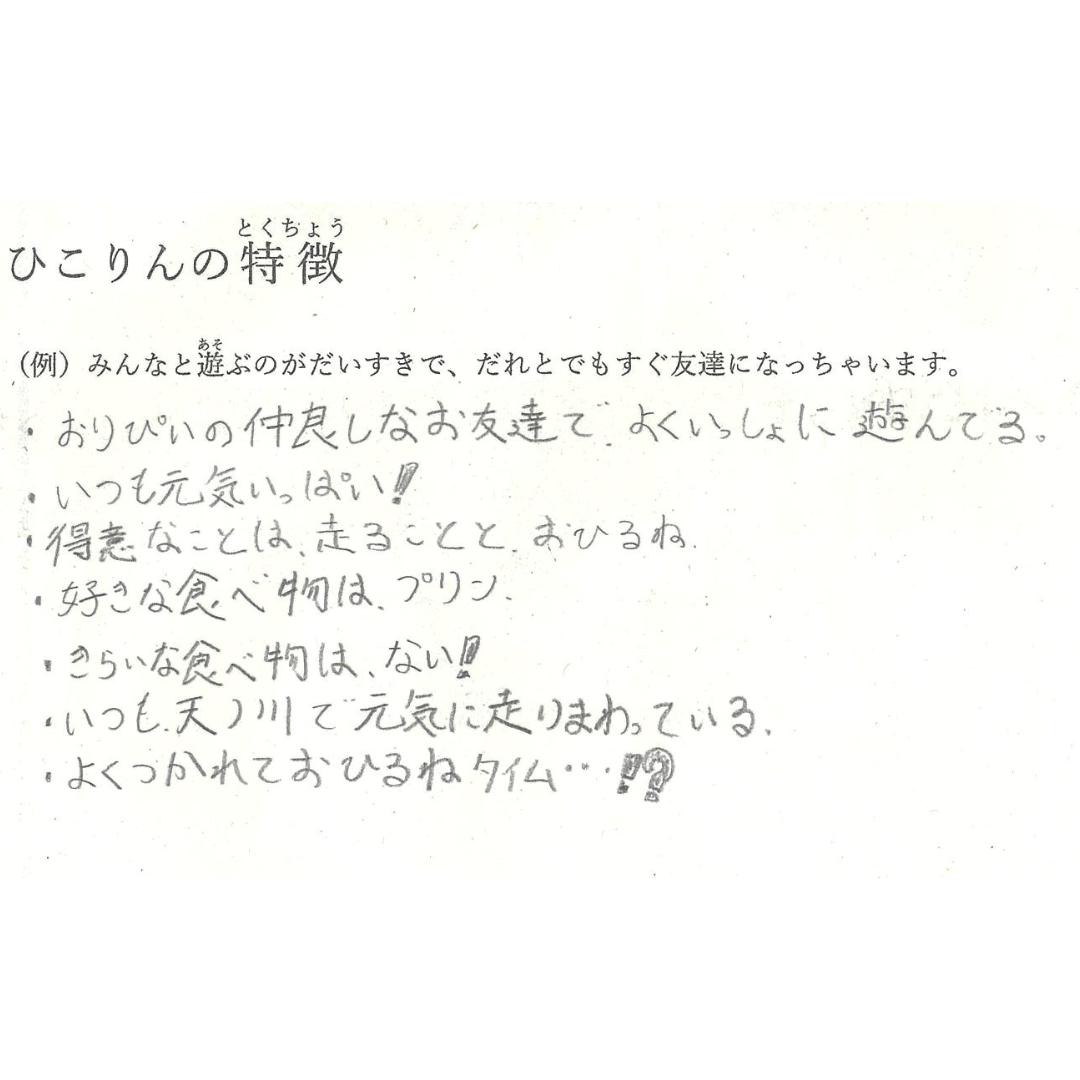 とくちょう
ひこりんの特徴
あそ
（例）みんなと遊ぶのがだいすきで、だれとでもすぐ友達になっちゃいます。
・おりぴぃの仲良しなお友達で、よくいっしょに遊んでる。
・いつも元気いっぱい!
・得意なことは、走ることと、おひるね。
・好きな食べ物は、プリン。
・きらいな食べ物は、ない!!
・いつも、天ノ川で元気に走りまわっている。
・よくつかれておひるねタイム…!?